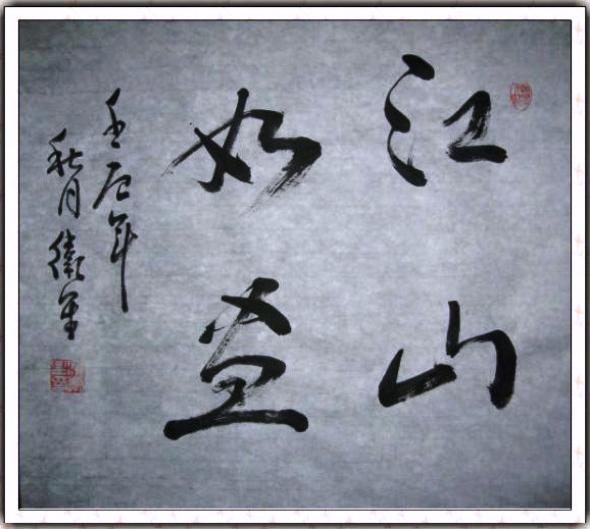 江山
如畫
壬辰年
秋月衛